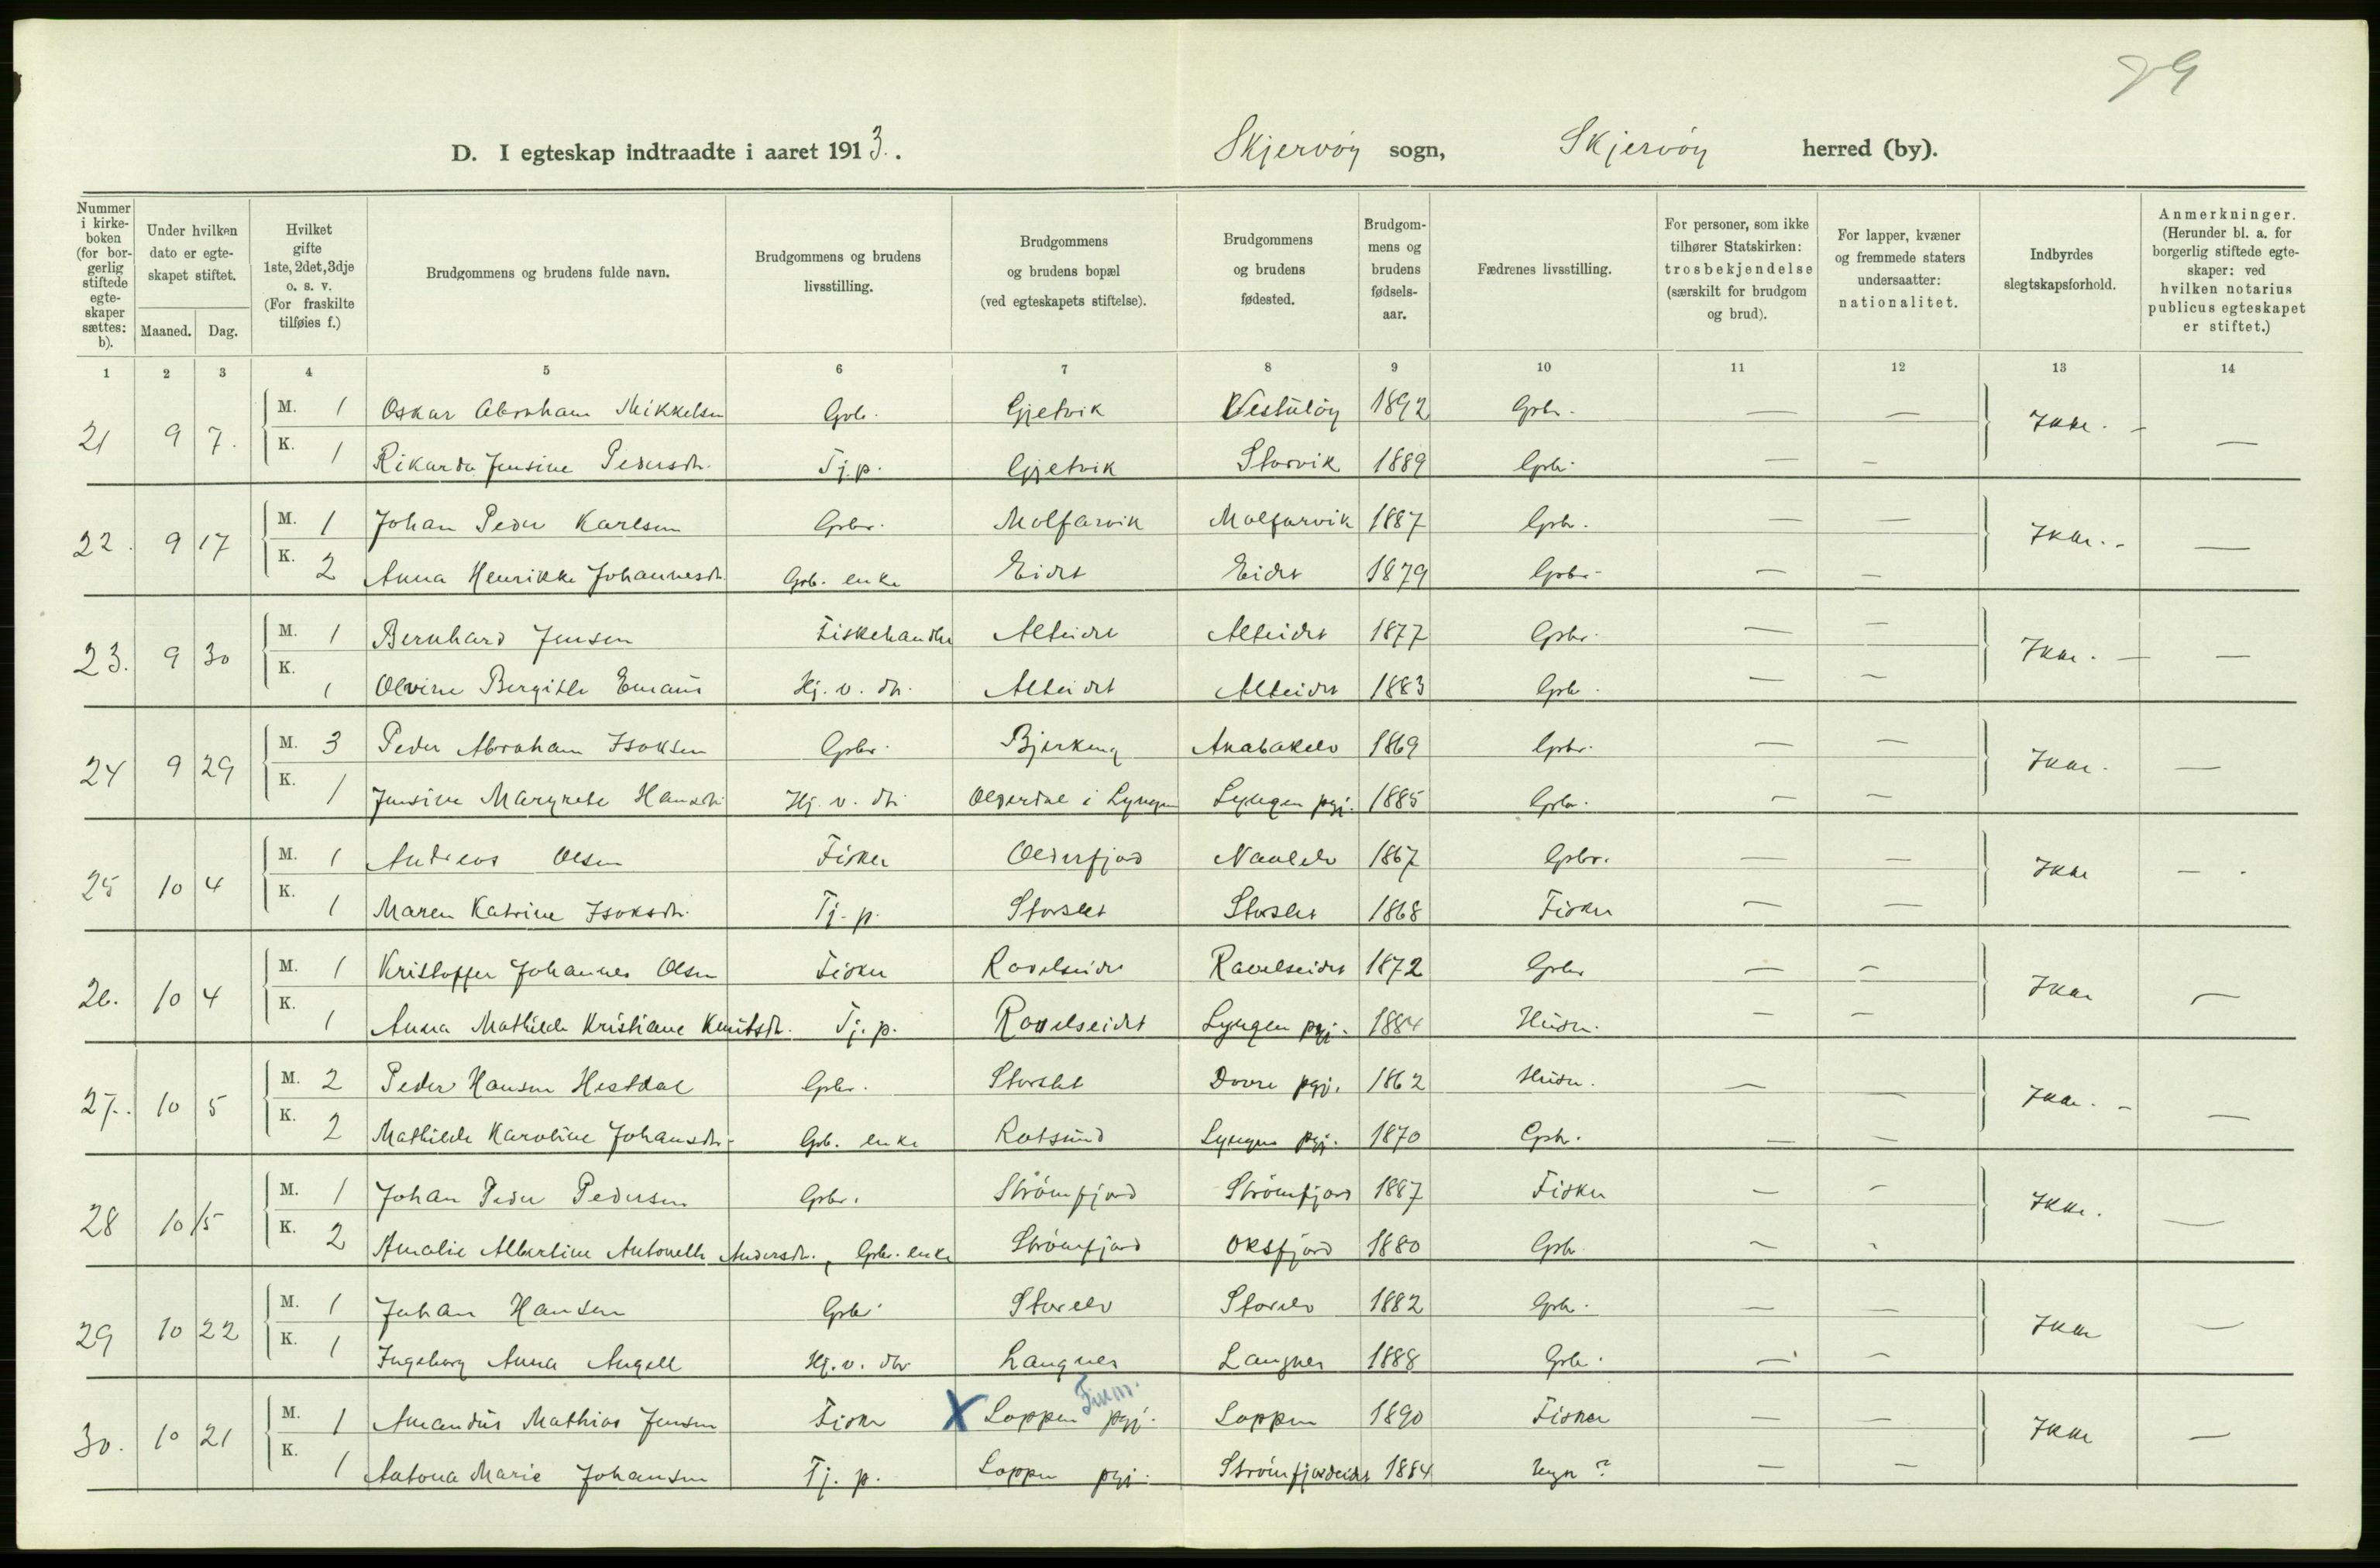 29
D. I egteskap indtraadte i aaret 1913. Skjervöy sogn, Skjervöy herred (by).
Nummer i kirkeboken (for borgerlig stiftede egteskaper sættes: b).
Under hvilken dato er egteskapet stiftet.
Maaned. Dag.
Hvilket gifte 1ste, 2det, 3dje o. s. v. (For fraskilte tilføies f.)
Brudgommens og brudens fulde navn.
Brudgommens og brudens livsstilling.
Brudgommens og brudens bopæl (ved egteskapets stiftelse).
Brudgommens og brudens fødested.
Brudgommens og brudens fødselsaar.
Fædrenes livsstilling.
For personer, som ikke tilhører Statskirken: trosbekjendelse (særskilt for brudgom og brud).
For lapper, kvæner og fremmede staters undersaatter: nationalitet.
Indbyrdes slegtskapsforhold.
Anmerkninger. (Herunder bl. a. for borgerlig stiftede egteskaper: ved hvilken notarius publicus egteskapet er stiftet.)
1 2 3 4 5 6 7 8 9 10 11 12 13 14
21 9 7. M. 1 Oskar Abraham Mikkelsen Gbr. Gjetvik 1892 Gbr. — — Ikke. — —
K. 1 Rikarda Jensine Pedersdtr. Tj. p. Gjetvik Storvik 1889 Gbr. — —
22. 9 17 M. 1 Johan Peder Karlsen Gbr. Molfarvik Molfarvik 1887 Gbr. — — Ikke. — —
K. 2 Anna Henrikke Johannesdtr. Gbr. enke Eidet Eidet 1879 Gbr. — —
23. 9 30 M. 1 Bernhard Jensen Fiskehandler Alteidet Alteidet 1877 Gbr. — — Ikke. — —
K. 1 Olvine Bergitte Emaus Hj. v. dtr. Alteidet Alteidet 1883 Gbr. — —
24 9 29 M. 3 Peder Abraham Isaksen Gbr. Bjerkeng 1869 Gbr. — — Ikke. —
K. 1 Jensine Margrete Hansdtr. Hj. v. dtr. Olderdal i Lyngen Lyngen pgj. 1885 Gbr. — —
25 10 4 M. 1 Andreas Olsen Fisker Olderfjord Navelelv 1867 Gbr. — — Ikke —
K. 1 Maren Katrine Isaksdtr. Tj. p. Storslet Storslet 1868 Fisker — —
26. 10 4 M. 1 Kristoffer Johannes Olsen Fisker Ravelseidet Ravelseidet 1872 Gbr — — Ikke —
K. 1 Anna Mathilde Kristiane Knutsdtr. Tj. p. Ravelseidet Lyngen pgj. 1884 Husm. — —
27. 10 5 M. 2 Peder Hansen Hestdal Gbr. Storslet Dovre pgj. 1862 Husm. — — Ikke. — —
K. 2 Mathilde Karoline Johansdtr. Gbr. enke Rotsund Lyngen pgj. 1870 Gbr. — —
28 10 15 M. 1 Johan Peder Pedersen Gbr. Strömfjord Strömfjord 1887 Fisker — — Ikke. —
K. 2 Amalie Albertine Antonette Andersdtr., Gbr. enke Strömfjord Oksfjord 1880 Gbr. — —
29 10 22 M. 1 Johan Hansen Gbr. Storelv Storelv 1882 Gbr. — — Ikke —
K. 1 Ingeborg Anna Angell Hj. v. dtr. Langnes Langnes 1888 Gbr. — —
30. 10 21 M. 1 Amandus Mathias Jensen Fisker X Loppen pgj. Finm. Loppen 1890 Fisker — — Ikke —
K. 1 Antona Marie Johansen Tj. p. Loppen pgj. Strömfjordeidet 1884 — —